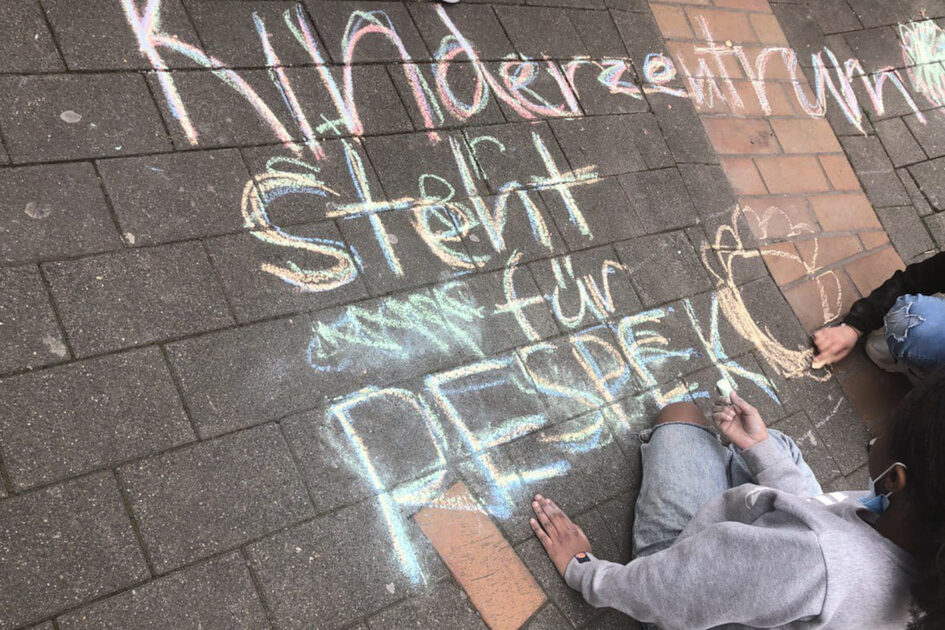 Kinderzentrum
Steht
für
RESPEK